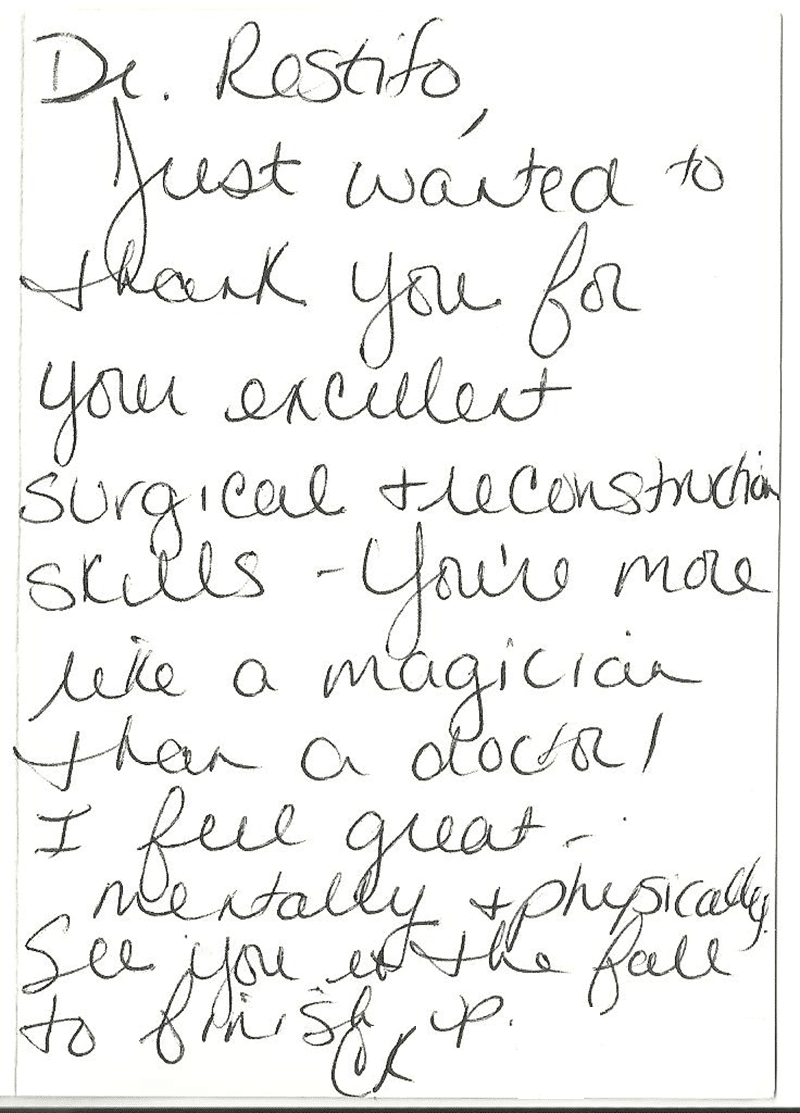 Dr. Restifo,
Just wanted to
thank you for
your excellent
surgical + reconstruction
skills - You're more
like a magician
than a doctor!
I feel great -
mentally + physically.
See you in the fall
to finish up.
CK